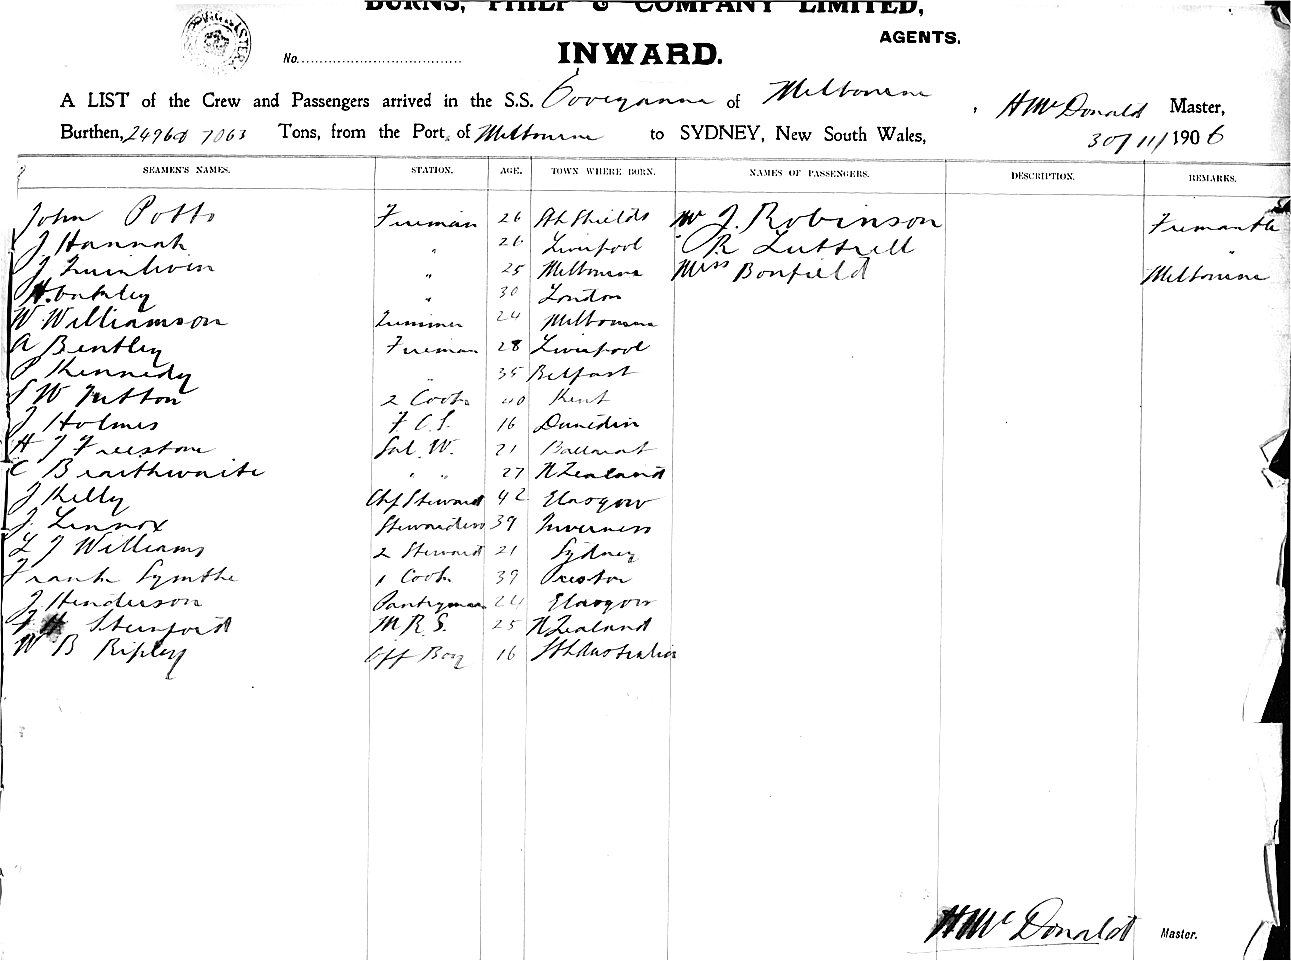 BURNS, PHILP & COMPANY LIMITED,
AGENTS.
No.
INWARD.
A LIST of the Crew and Passengers arrived in the S.S. of Melbourne, H McDonald Master,
Burthen, Tons, from the Port of Melbourne to SYDNEY, New South Wales, 30/11/1906
SEAMEN'S NAMES. STATION. AGE. TOWN WHERE BORN. NAMES OF PASSENGERS. DESCRIPTION. REMARKS.
John Potts Fireman 26 Sth Shields Mr J. Robinson Fremantle
J Hannah " 26 Liverpool " R Luttrell "
J Quinliven " 25 Melbourne Miss Bonfield Melbourne
H. Oakley " 30 London
W Williamson Trimmer 24 Melbourne
A Bentley Fireman 28 Liverpool
P Kennedy " 35 Belfast
S W Jutton 2 Cook 40 Kent
J Holmes F.C.S. 16 Dunedin
H J Freestone Sal. W. 21 Ballarat
C Braithwaite " " 27 N Zealand
J Kelly Chf Steward 42 Glasgow
J. Lennox Stewardess 39 Inverness
L J Williams 2 Steward 21 Sydney
Frank Symthe 1 Cook 39 Preston
J Henderson Pantryman 24 Glasgow
F H M.R.S. 25 N Zealand
W B Ripley Off Boy 16 Sth Australia
H McDonald Master.